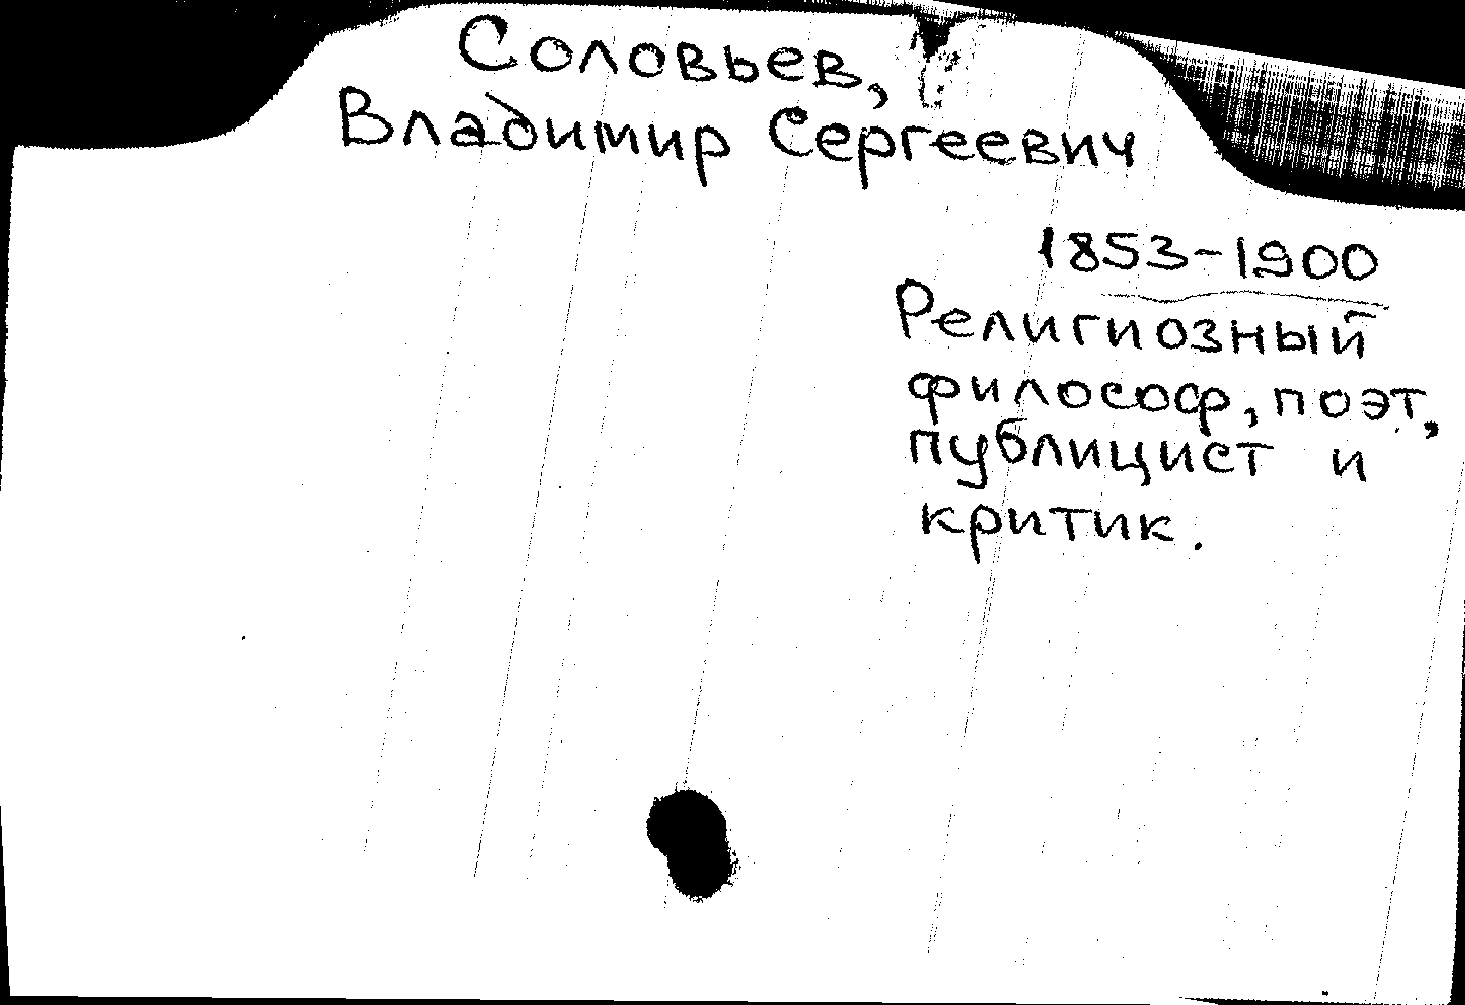 Соловьев,
Владимир Сергеевич
1853-1900
Религиозный
философ, поэт,
публицист и
критик.